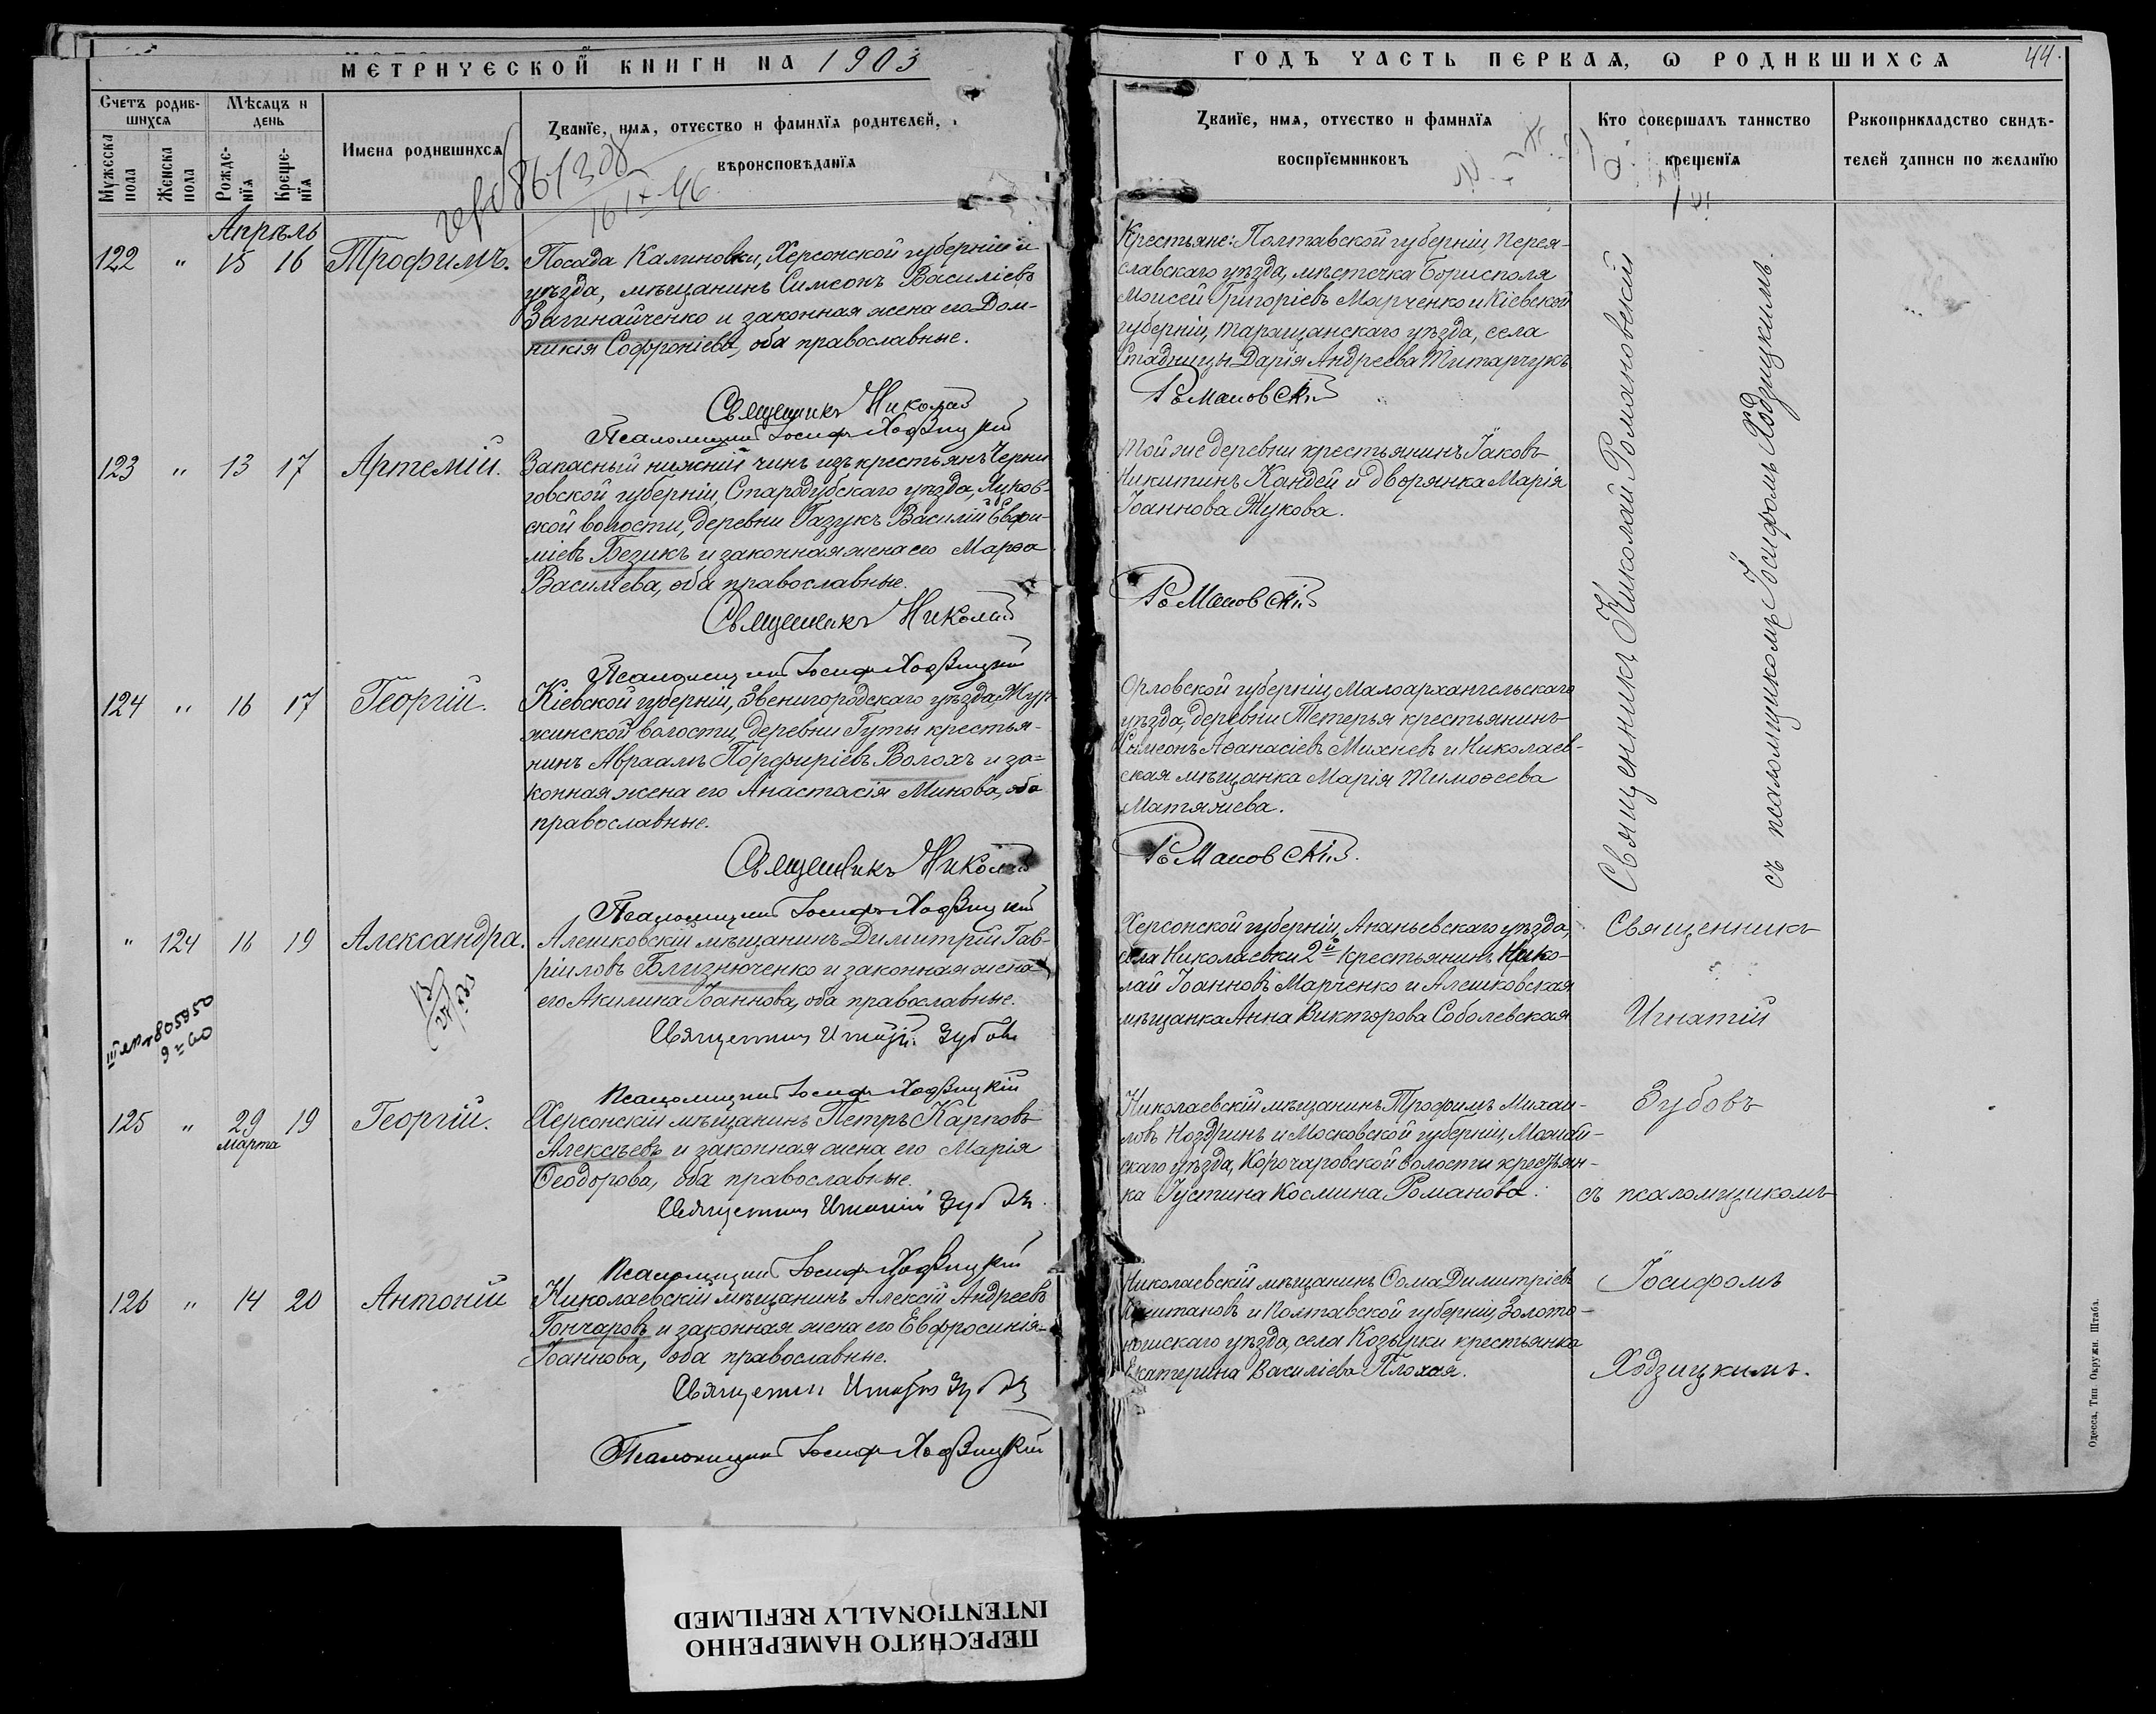 МЕТРИЧЕСКОЙ КНИГИ НА 1903
Счетъ родив-
шихся
Мѣсяцъ и
день
Мужеска
пола
Женска
пола
Рожде-
нія
Креще-
нія
Имена родившихся
Званіе, имя, отчество и фамилія родителей,
вѣроисповѣданія
861308
16 IX 46.
Апрѣль
122 " 15 16 Трофимъ.
Посада Калиновки, Херсонской губерніи и
уѣзда, мѣщанинъ Симеонъ Василіевъ
Загинайченко и законная жена его Дом-
никія Софроніева, оба православные.
Священникъ Николай
Псаломщикъ Іосифъ Ходзицкій
123 " 13 17 Артемій.
Запасный нижній чинъ изъ крестьянъ Черни
говской губерніи, Стародубскаго уѣзда, Луков-
ской волости, деревни Газукъ Василій Евфи-
міевъ Безикъ и законная жена его Марѳа
Василіева, оба православные.
Священникъ Николай
Псаломщикъ Іосифъ Ходзицкій
124 " 16 17 Георгій.
Кіевской губерніи, Звенигородскаго уѣзда, Жур-
жинской волости, деревни Гуты крестья-
нинъ Авраамъ Порфиріевъ Волохъ и за-
конная жена его Анастасія Минова, оба
православные.
Священникъ Николай
Псаломщикъ Іосифъ Ходзицкій
" 124 16 19 Александра.
Алешковскій мѣщанинъ Димитрій Гав-
ріиловъ Близнюченко и законная жена
его Акилина Іоаннова, оба православные.
Священникъ Игнатій Зубовъ
Псаломщикъ Іосифъ Ходзицкій
125 " 29 19 Георгій.
марта
Херсонскій мѣщанинъ Петръ Карповъ
Алексѣевъ и законная жена его Марія
Ѳеодорова, оба православные.
Священникъ Игнатій Зубовъ
Псаломщикъ Іосифъ Ходзицкій
126 " 14 20 Антоній
Николаевскій мѣщанинъ Алексій Андреевъ
Гончаровъ и законная жена его Евфросинія
Іоаннова, оба православные.
Священникъ Игнатій Зубовъ
Псаломщикъ Іосифъ Ходзицкій
ГОДЪ ЧАСТЬ ПЕРВАЯ, Ѡ РОДИВШИХСЯ 44.
Званіе, имя, отчество и фамилія
воспріемниковъ
Кто совершалъ таинство
крещенія
Рукоприкладство свидѣ-
телей записи по желанію
Крестьяне: Полтавской губерніи, Перея-
славскаго уѣзда, мѣстечка Борисполя
Моисей Григоріевъ Марченко и Кіевской
губерніи, Таращанскаго уѣзда, села
Стадницы Дарія Андреева Титарчукъ
Романовскій
Той же деревни крестьянинъ Іаковъ
Никитинъ Кандей и дворянка Марія
Іоаннова Жукова.
Романовскій
Орловской губерніи, Малоархангельскаго
уѣзда, деревни Тетерья крестьянинъ
Симеонъ Аѳанасіевъ Михневъ и Николаев-
ская мѣщанка Марія Тимоѳеева
Матяжева.
Романовскій.
Священникъ Николай Романовскій
съ псаломщикомъ Іосифомъ Ходзицкимъ.
Херсонской губерніи, Ананьевскаго уѣзда,
села Николаевки 2й крестьянинъ Нико-
лай Іоанновъ Марченко и Алешковская
мѣщанка Анна Викторова Соболевская
Николаевскій мѣщанинъ Трофимъ Михаи-
ловъ Ноздринъ и Московской губерніи, Можай-
скаго уѣзда, Корочаровской волости крестьян-
ка Іустина Космина Романова.
Николаевскій мѣщанинъ Ѳома Димитріевъ
Каштановъ и Полтавской губерніи, Золото-
ношскаго уѣзда, села Козырки крестьянка
Екатерина Василіева Плохая.
Священникъ
Игнатій
Зубовъ
съ псаломщикомъ
Іосифомъ
Ходзицкимъ.
Одесса, Тип. Окружн. Штаба.
ПЕРЕСНЯТО НАМЕРЕННО
INTENTIONALLY REFILMED